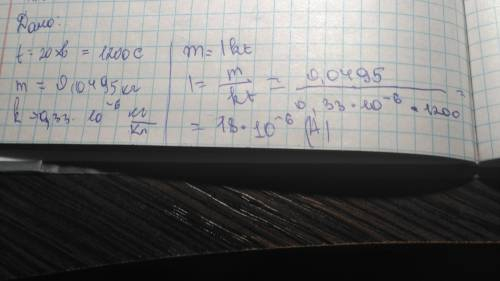 Дано:
t = 20хв = 1200 С
m = 0,0495 кг
k = 0,33 · 10⁻⁶ кг/Кл
m = Ikt
I = m/kt = 0,0495/0,33 · 10⁻⁶ · 1200 =
= 18 · 10⁻⁶ (А)